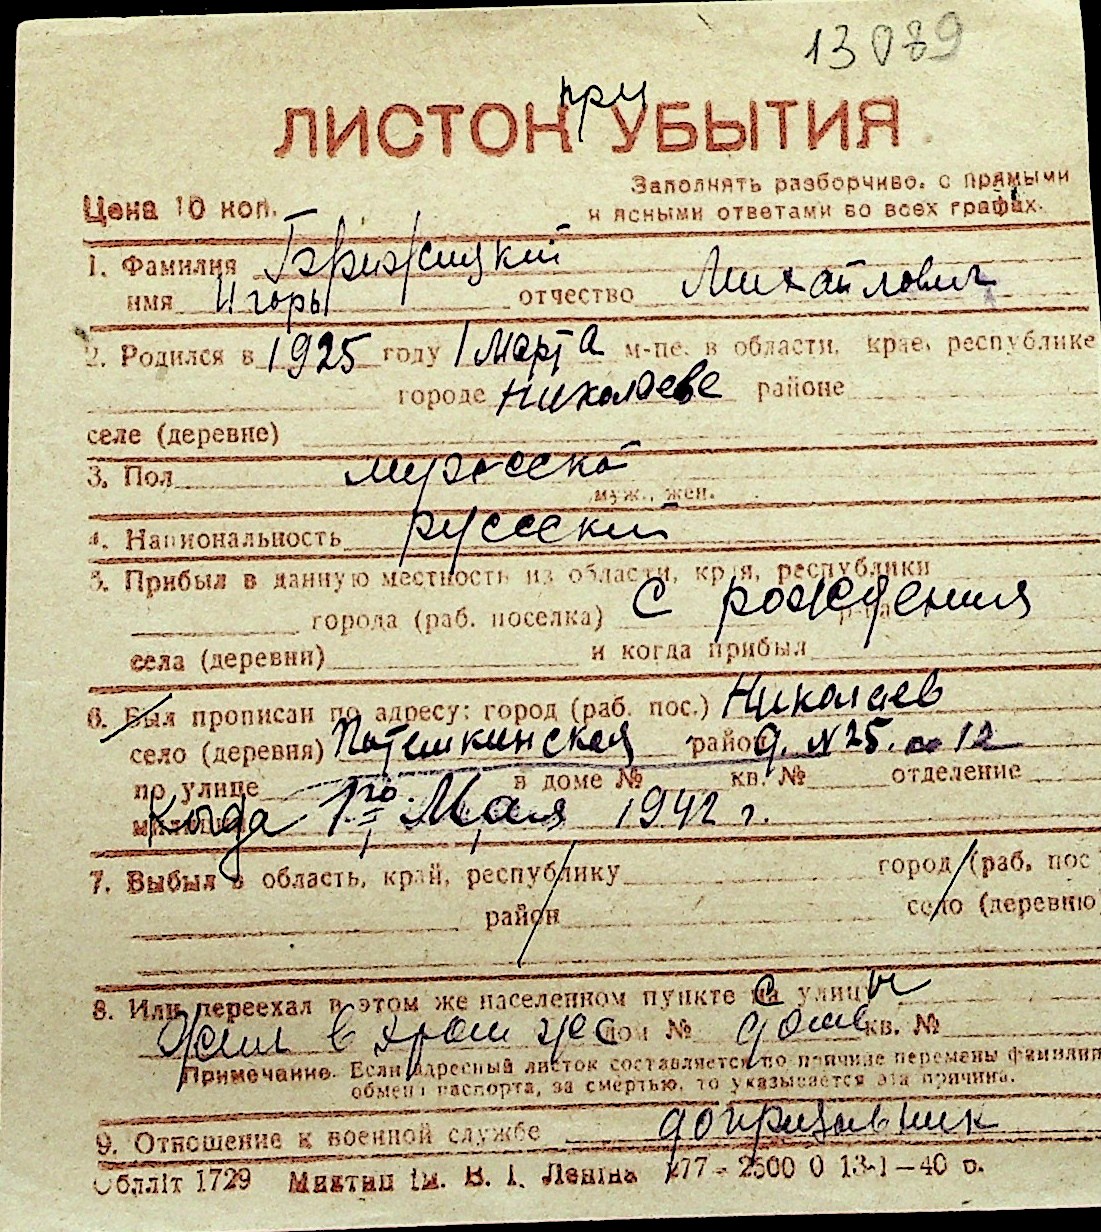 13089
ЛИСТОК при УБЫТИЯ
Заполнять разборчиво, с прямыми
Цена 10 коп.
и ясными ответами во всех графах.
1. Фамилия Бржицкий
имя Игорь отчество Михайлович
2. Родился в 1925 году 1 марта м-це, в области, крае, республике
городе Николаеве районе
селе (деревне)
3. Пол мужской
муж., жен.
4. Национальность русский
5. Прибыл в данную местность из области, края, республики
города (раб. поселка) С рождения
села (деревни) и когда прибыл
6. Был прописан по адресу: город (раб. пос.) Николаев
село (деревня) Потемкинская район д. №25. 12
по улице в доме № кв. № отделение
Когда 1го Мая 1942 г.
7. Выбыл в область, край, республику город (раб. пос
район село (деревню)
8. Или переехал в этом же населенном пункте с улицы
Жил в этом же дом № доме кв. №
Примечание. Если адресный листок составляется по причине перемены фамилии
обмена паспорта, за смертью, то указывается эта причина.
9. Отношение к военной службе допризывник
Облліт 1729 Миктип ім. В. І. Леніна 277-2500 0 13-1-40 р.